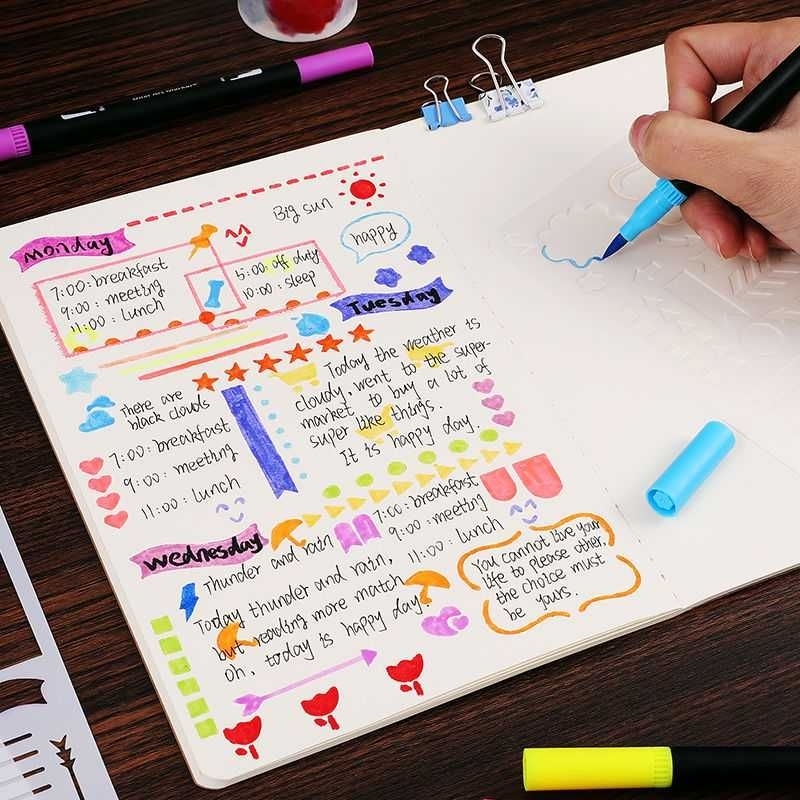 Big sun
monday
happy
7:00: breakfast
9:00: meeting
11:00: Lunch
5:00: off duty
10:00: sleep
Tuesday
Today the weather is
cloudy, went to the super-
market to buy a lot of
super like things.
It is happy day.
There are
black clouds
7:00: breakfast
9:00: meeting
11:00: Lunch
wednesday
Thunder and rain
7:00: breakfast
9:00: meeting
11:00: Lunch
Today thunder and rain,
but reading more match
oh, today is happy day!
You cannot live your
life to please other.
the choice must
be yours.